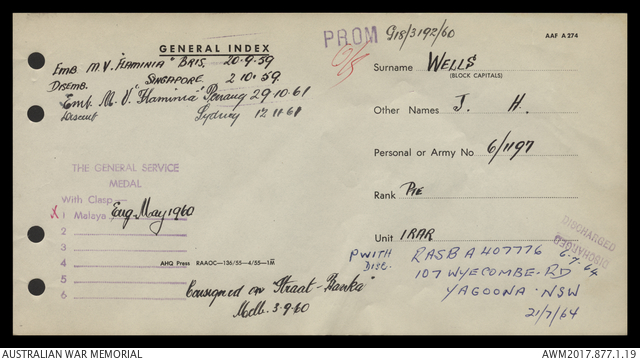 PROM G18/3192/60
AAF A 274
GENERAL INDEX
Emb. M.V. "FLAMINIA" BRIS. 20.9.59
DISEMB. SINGAPORE 2 10.59.
Emb. M.V. "Flaminia" Penang 29.10.61
Sydney 12.11.61
Surname WELLS
(BLOCK CAPITALS)
Other Names J. H.
Personal or Army No 6/1197
Rank PTE
Unit 1RAR
THE GENERAL SERVICE
MEDAL
With Clasp
X 1 Malaya May 1960
2
3
4
5
6
AHQ Press RAAOC—136/55—4/55—1M
Consigned on "Straat-Banka"
Melb. 3.9.60
DISCHARGED
DISCHARGED
6.7.64
P WITH DISC. RASB A 407776
107 WYECOMBE-RD
YAGOONA. NSW
21/7/64
AUSTRALIAN WAR MEMORIAL
AWM2017.877.1.19